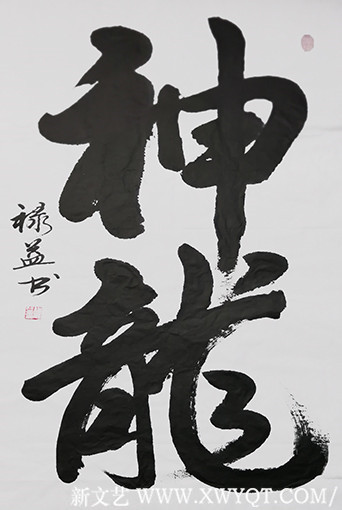 神龍
禄益书
新文艺 WWW.XWYQT.COM/